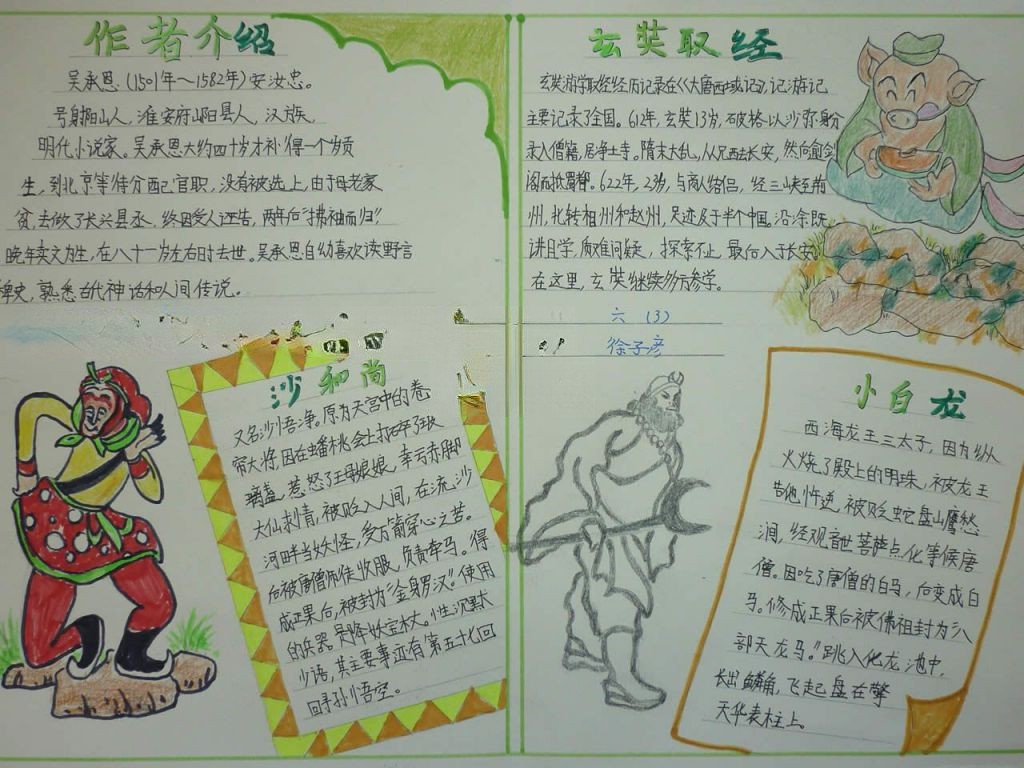 作者介绍
吴承恩(1501年~1582年)安汝忠。
号射阳山人,淮安府山阳县人,汉族
明代小说家。吴承恩大约四十岁才补得一个岁贡
生,到北京等待分配官职,没有被选上,由于母老家
贫,去做了长兴县丞,终因受人诬告,两年后"拂袖而归"
晚年卖文为生,在八十一岁左右时去世。吴承恩自幼喜欢读野言
稗史,熟悉古代神话和人间传说。
沙和尚
又名沙悟净。原为天宫中的卷
帘大将,因在蟠桃会上打碎了琉
璃盏,惹怒了王母娘娘,幸亏赤脚
大仙刺情,被贬入人间,在流沙
河畔当妖怪,受万箭穿心之苦。
后被唐僧师徒收服,负责牵马。得
成正果后,被封为"金身罗汉"。使用
的兵器是降妖宝杖。性沉默
少语,其主要事迹有第五十七回
回手孙悟空。
玄奘取经
玄奘游学取经经历记录在《大唐西域记》,记游记
主要记录了全国。612年,玄奘13岁,破格以沙弥身份
录入僧籍,居净土寺。隋末大乱,从兄西去长安,然向剑
阁而抵蜀都。622年,2岁,与商人结侣,经三峡至荆
州,北转相州和赵州,足迹及于半个中国。沿涂既
讲且学,质难问疑,探索不止,最后入于长安
在这里,玄奘继续多方参学。
六(3)
徐子彦
小白龙
西海龙王三太子,因为纵
火烧了殿上的明珠,被龙王
告他忤逆,被贬蛇盘山鹰愁
涧,经观音世菩萨点化等候唐
僧。因吃了唐僧的白马,后变成白
马。修成正果后被佛祖封为"八
部天龙马。"跳入化龙池中,
长出鳞角,飞起盘在擎
天华表柱上。